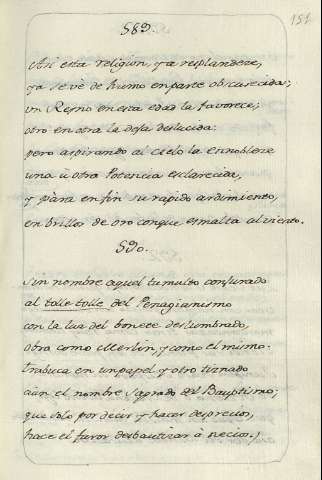 589.
151
Asi esta religion, ya resplandeze,
ya se vè de humo en parte obscurecida;
un Reyno en esta edad la favorece;
otro en otra la dexa deslucida:
pero aspirando al cielo la ennobleze
una ù otra Potencia esclarecida,
y pàra en fin su rapido ardimiento,
en brillos de oro conque esmalta al viento.
590.
Sin nombre aquel tumulto conjurado
al tolle tolle del Pelagianismo
con la luz del bonete deslumbrado,
obra como Merlin, y como el mismo.
trabuca en un papel y otro tiznado
aùn el nombre sagrado del Bauptismo;
que solo por decir y hacer desprecios,
hace el furor desbautizar à necios.